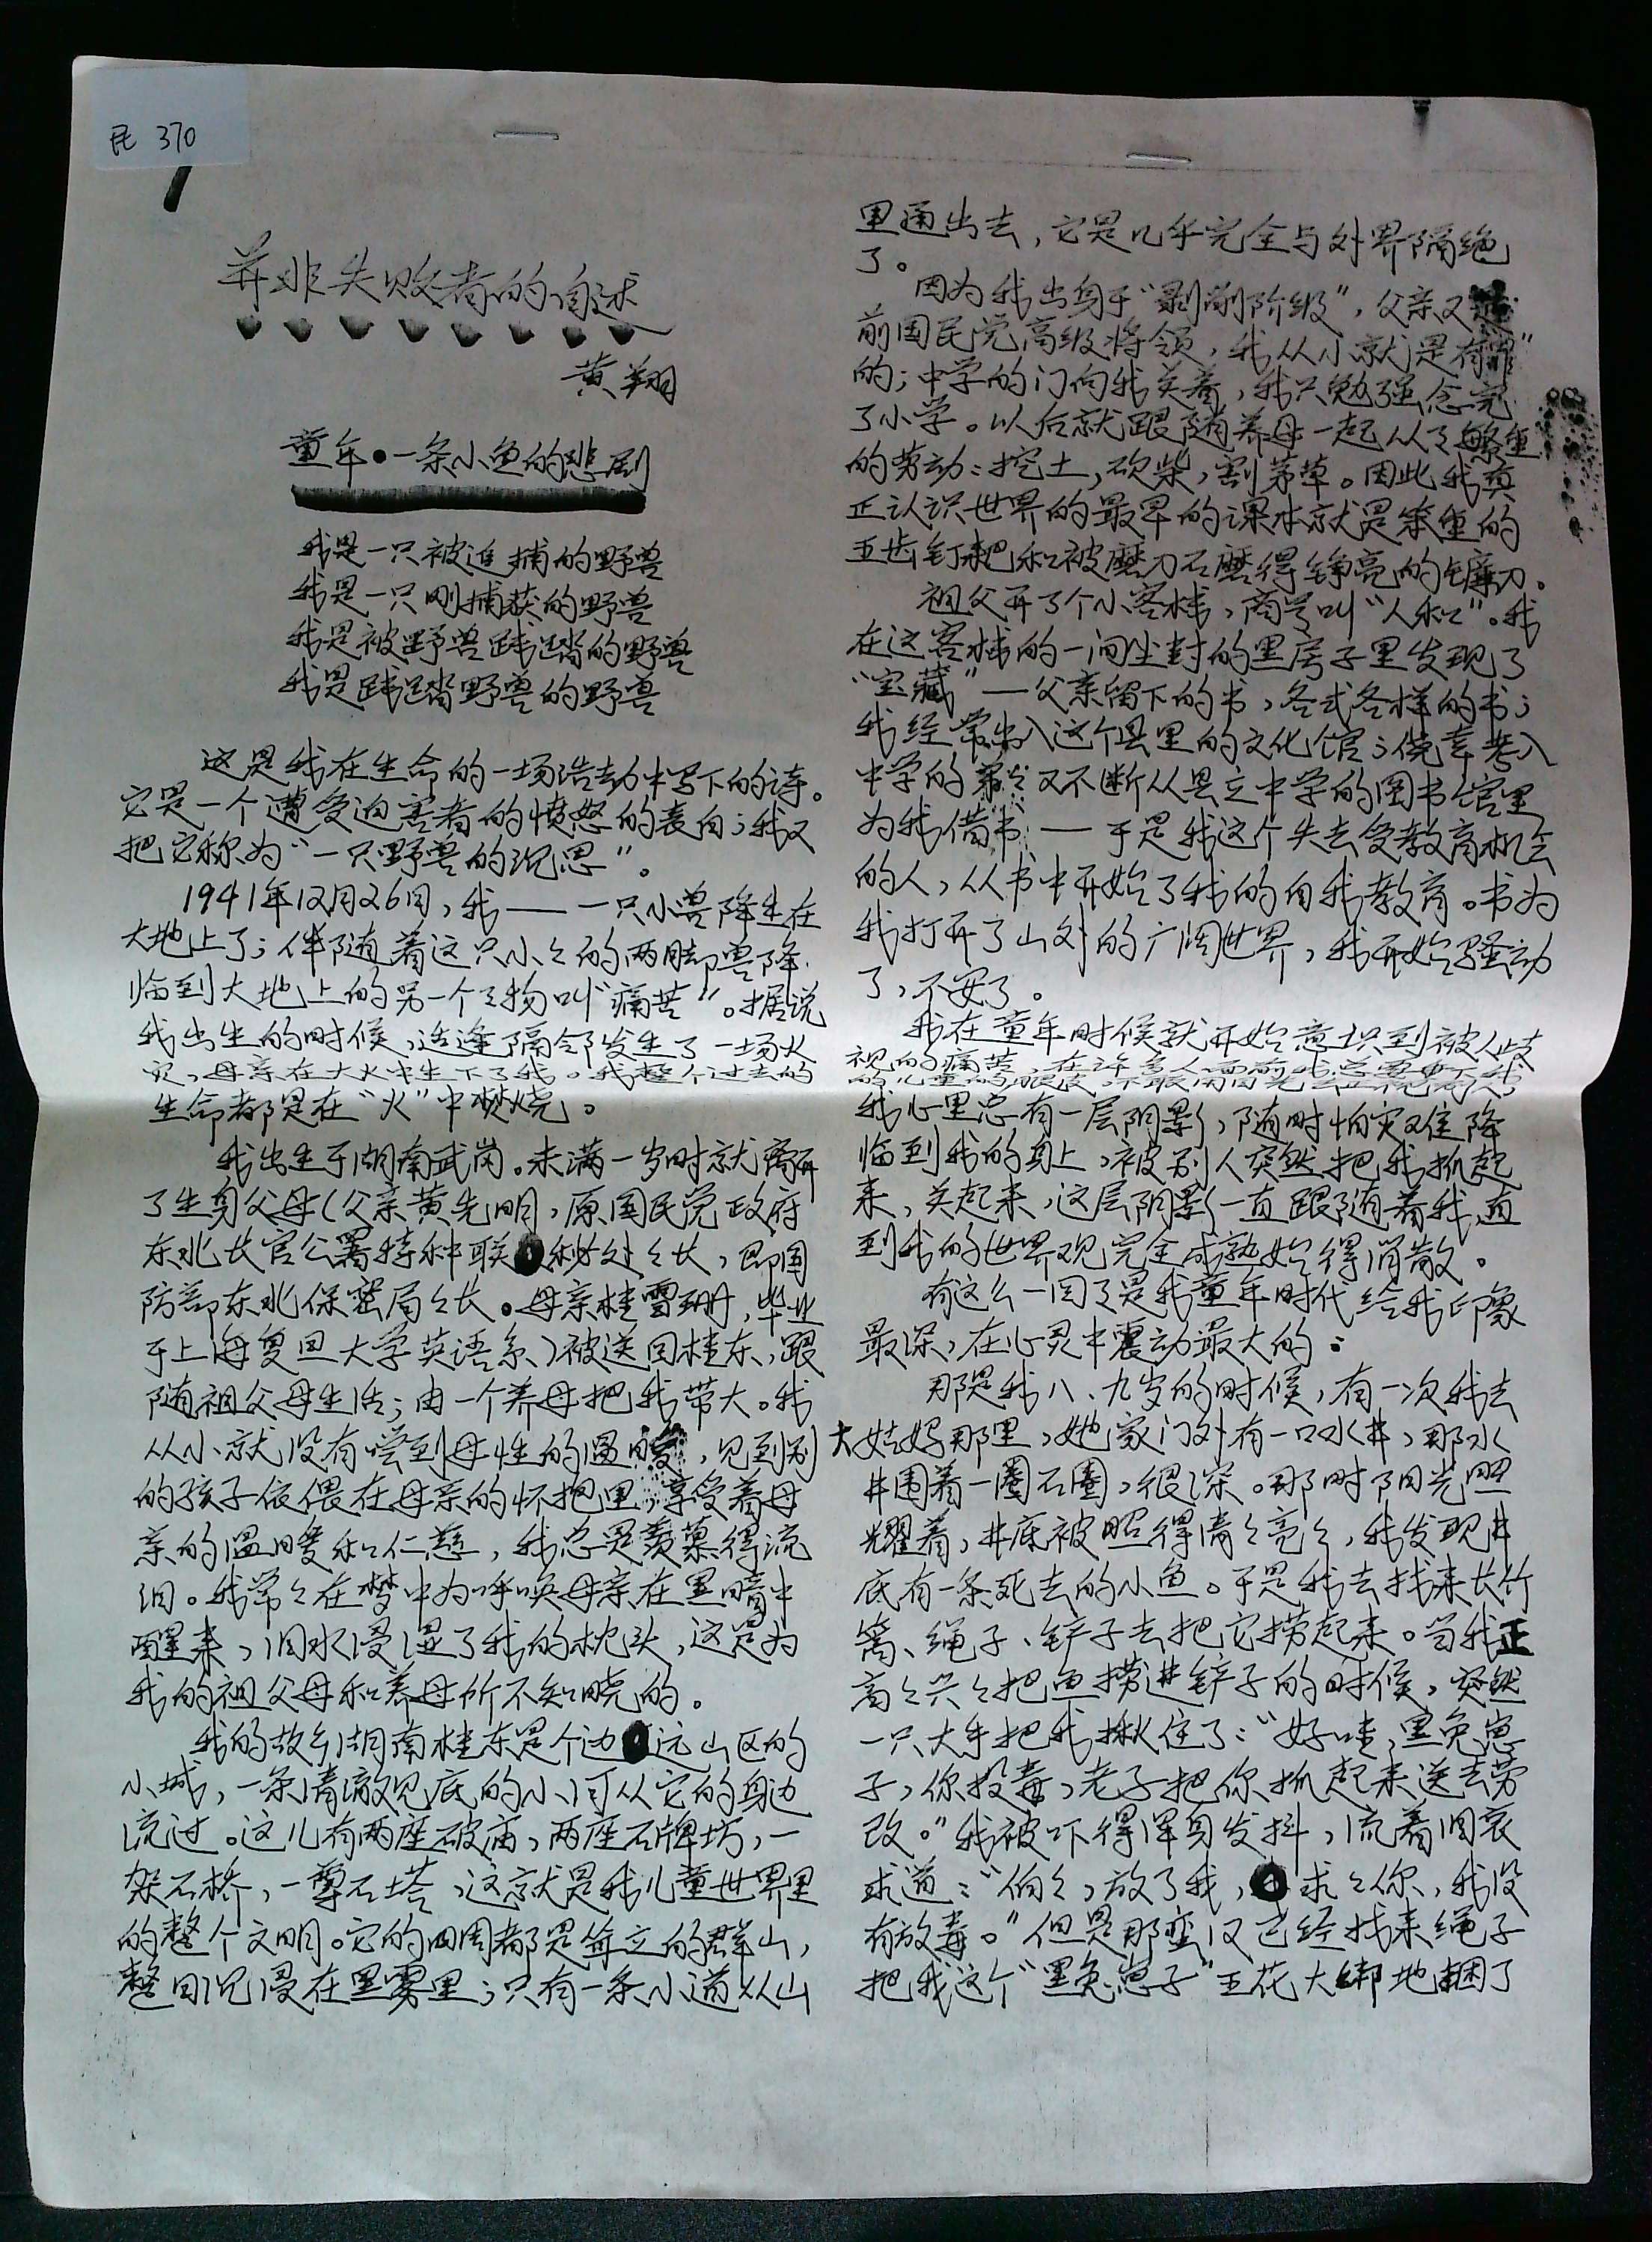 民 370
1
并非失败者的自述
黄翔
童年·一条小鱼的悲剧
我是一只被追捕的野兽
我是一只刚捕获的野兽
我是被野兽践踏的野兽
我是践踏野兽的野兽
这是我在生命的一场浩劫中写下的诗。
它是一个遭受迫害者的愤怒的表白；我又
把它称为“一只野兽的沉思”。
1941年12月26日，我——一只小兽降生在
大地上了；伴随着这只小々的两脚兽降
临到大地上的另一个事物叫“痛苦”。据说
我出生的时候，适逢隔邻发生了一场火
灾，母亲在大火中生下了我。我整个过去的
生命都是在“火”中焚烧。
我出生于湖南武岗。未满一岁时就离开
了生身父母（父亲黄先明，原国民党政府
东北长官公署特种联秘处々长，即国
防部东北保密局々长。母亲桂雪珊，毕业
于上海复旦大学英语系）被送回桂东，跟
随祖父母生活；由一个养母把我带大。我
从小就没有尝到母性的温暖，见到别
的孩子依偎在母亲的怀抱里，享受着母
亲的温暖和仁慈，我总是羡慕得流
泪。我常々在梦中为呼唤母亲在黑暗中
醒来，泪水浸湿了我的枕头，这是为
我的祖父母和养母所不知晓的。
我的故乡湖南桂东是个边远山区的
小城，一条清澈见底的小河从它的身边
流过。这儿有两座破庙，两座石牌坊，一
架石桥，一尊石塔，这就是我儿童世界里
的整个文明。它的四周都是耸立的群山，
整日沉浸在黑雾里；只有一条小道从山
里通出去，它是几乎完全与外界隔绝
了。
因为我出身于“剥削阶级”，父亲又是
前国民党高级将领，我从小就是有“罪”
的；中学的门向我关着，我只勉强念完
了小学。以后就跟随养母一起从事繁重
的劳动：挖土，砍柴，割茅草。因此我真
正认识世界的最早的课本就是笨重的
五齿钉耙和被磨刀石磨得铮亮的镰刀。
祖父开了个小客栈，商号叫“人和”。我
在这客栈的一间尘封的黑房子里发现了
“宝藏”——父亲留下的书，各式各样的书；
我经常出入这个县里的文化馆；侥幸考入
中学的弟々又不断从县立中学的图书馆里
为我借书——于是我这个失去受教育机会
的人，从书中开始了我的自我教育。书为
我打开了山外的广阔世界，我开始骚动
了，不安了。
我在童年时候就开始意识到被人歧
视的痛苦，在许多人面前我总要矮下
我心里总有一层阴影，随时怕灾难降
临到我的身上，被别人突然把我抓起
来，关起来，这层阴影一直跟随着我，直
到我的世界观完全成熟始得消散。
有这么一回事是我童年时代给我印象
最深，在心灵中震动最大的：
那是我八、九岁的时候，有一次我去
大姑妈那里，她家门外有一口水井，那水
井围着一圈石圈，很深。那时阳光照
耀着，井底被照得清々亮々，我发现井
底有一条死去的小鱼。于是我去找来长竹
篙、绳子、铲子去把它捞起来。当我正
高々兴々把鱼捞进铲子的时候，突然
一只大手把我揪住了：“好哇，黑兔崽
子，你投毒，老子把你抓起来送去劳
改。”我被吓得浑身发抖，流着泪哀
求道：“伯々，放了我，求々你，我没
有放毒。”但是那蛮汉已经找来绳子
把我这个“黑兔崽子”五花大绑地捆了